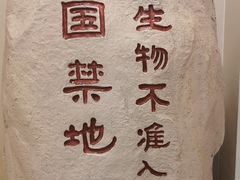 国禁地
生物不准入